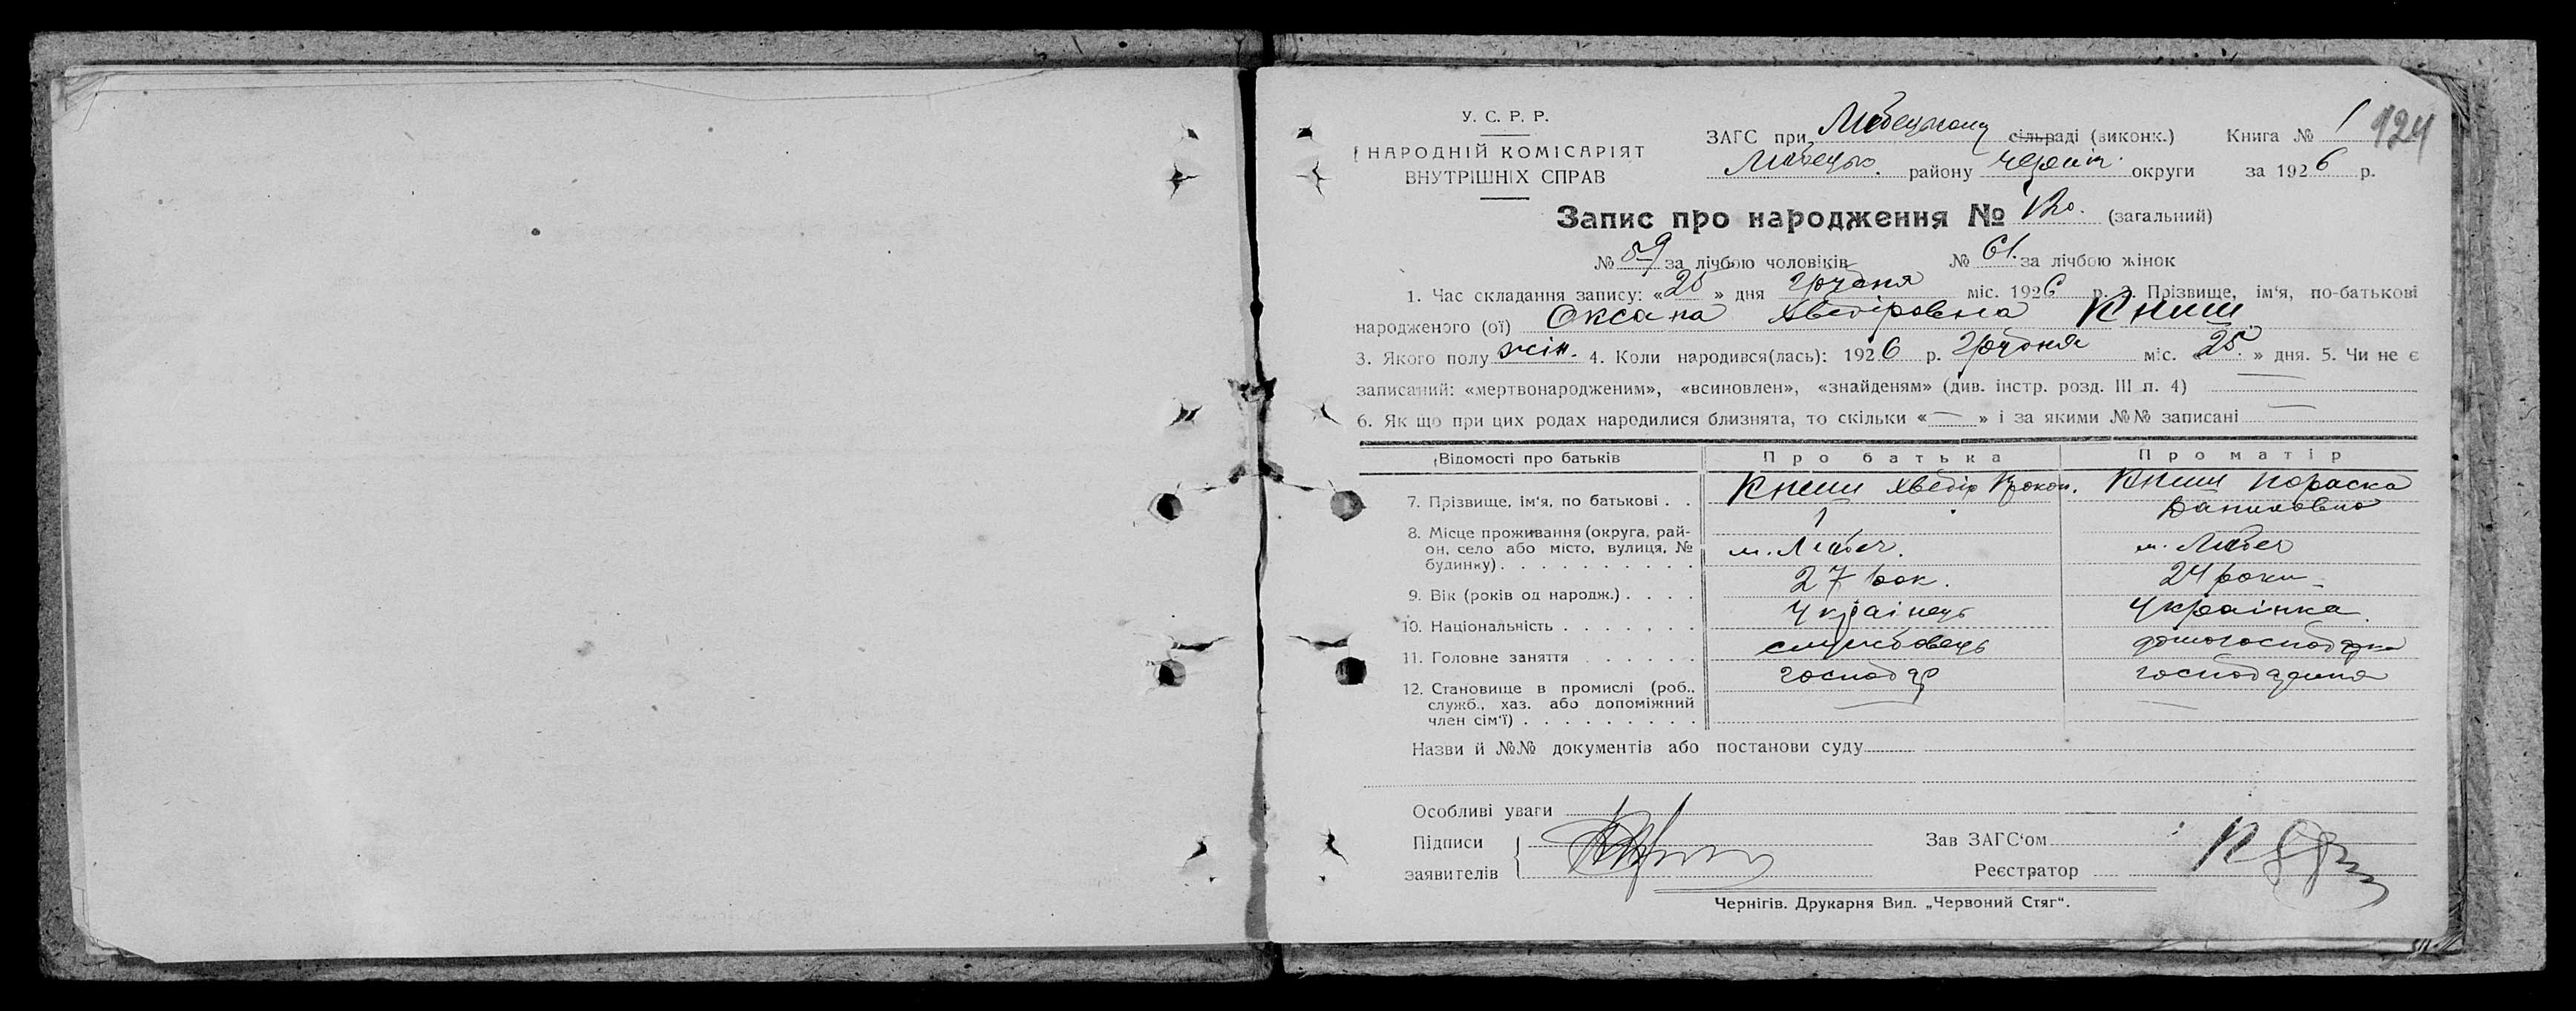 У. С. Р. Р.
НАРОДНІЙ КОМІСАРІЯТ
ВНУТРІШНІХ СПРАВ
ЗАГС при Любецькому сільраді (виконк.) Книга № 1 124
Любецьк. району Черніг. округи за 1926 р.
Запис про народження № 120. (загальний)
№ 59 за лічбою чоловіків № 61. за лічбою жінок
1. Час складання запису: « » дня грудня міс. 1926 р. 2. Прізвище, ім'я, по-батькові
народженого (ої) Оксана Хведіровна Книш
3. Якого полу жін. 4. Коли народився(лась): 1926 р. Грудня міс. «25» дня. 5. Чи не є
записаний: «мертвонародженим», «всиновлен», «знайденям» (див. інстр. розд. III п. 4) —
6. Як що при цих родах народилися близнята, то скільки «—» і за якими №№ записані —
Відомості про батьків Про батька Про матір
7. Прізвище, ім'я, по батькові . . Книш Хведір Проков. Книш Пораска
Даниловна
8. Місце проживання (округа, рай-
он, село або місто, вулиця, №
будинку) . . . . . . . . . . м. Любеч. м. Любеч
9. Вік (років од народж.) . . . . 27 рок. 24 роки
10. Національність . . . . . . . Українець Українка
11. Головне заняття . . . . . . службовець домогосподарка
12. Становище в промислі (роб.. господар господариня
служб., хаз. або допоміжний
член сім'ї) . . . . . . . . . — —
Назви й №№ документів або постанови суду
Особливі уваги
Підписи
заявителів
Зав ЗАГС'ом
Реєстратор
Чернігів. Друкарня Вид. „Червоний Стяг".